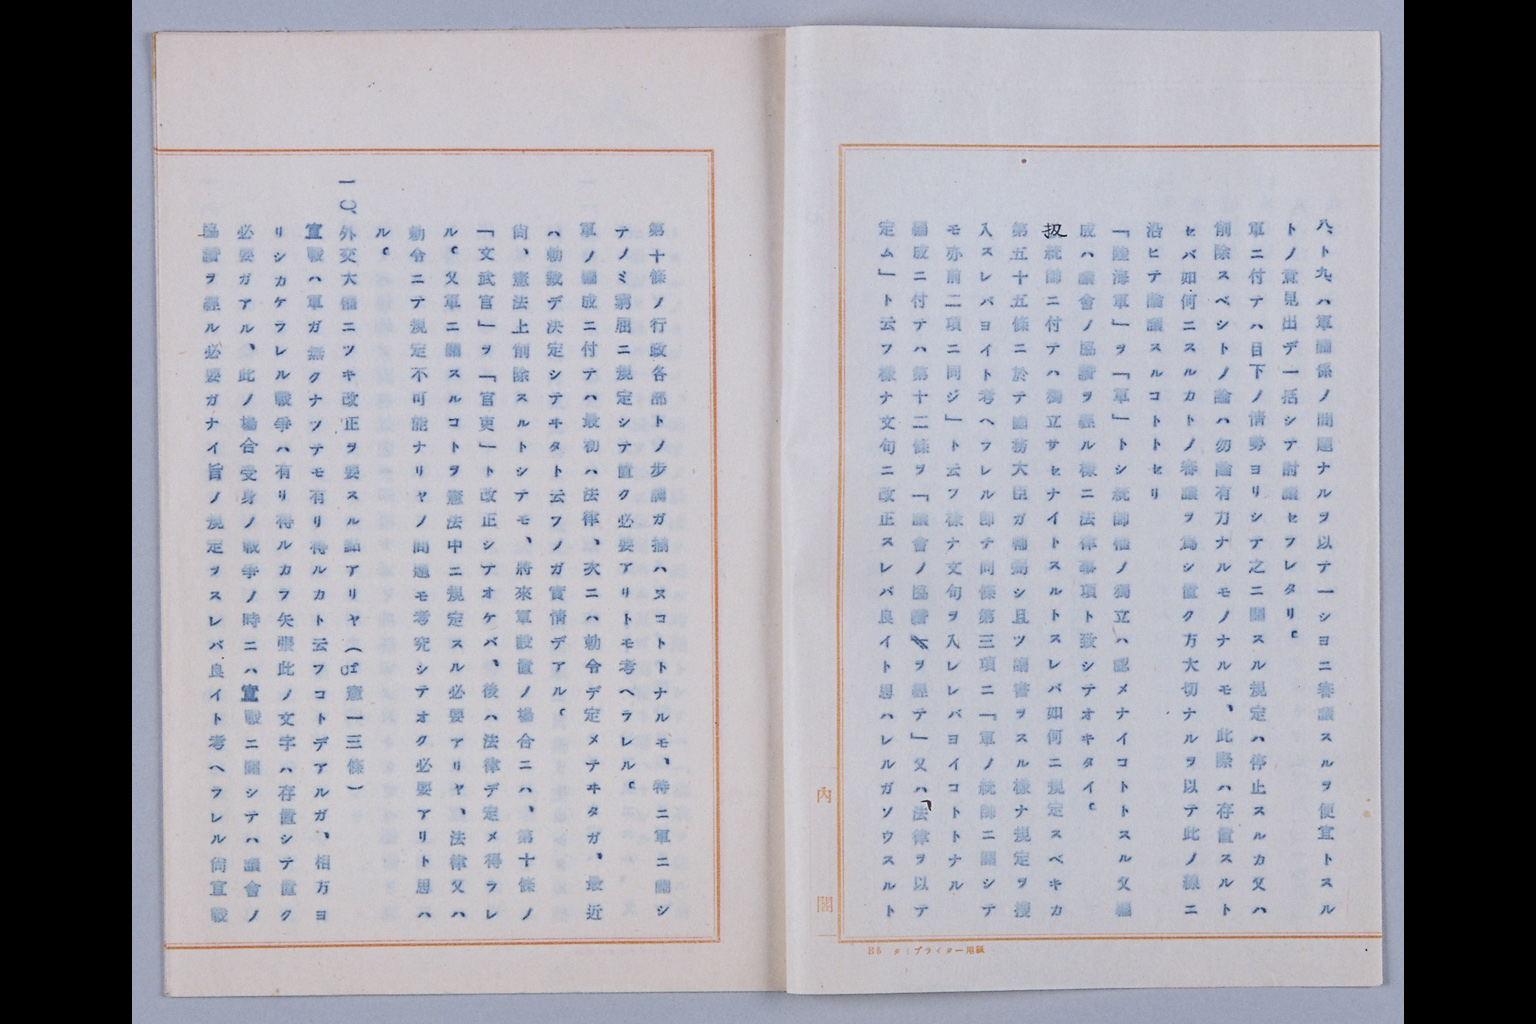 八、ト九、ハ軍關係ノ問題ナルヲ以テ一シヨニ審議スルヲ便宜トスル
トノ意見出デ一括シテ討議セラレタリ。
軍ニ付テハ目下ノ情勢ヨリシテ之ニ關スル規定ハ停止スルカ又ハ
削除スベシトノ論ハ勿論有力ナルモノナルモ、此際ハ存置スルト
セバ如何ニスルカトノ審議ヲ爲シ置ク方大切ナルヲ以テ此ノ線ニ
沿ヒテ論議スルコトトセリ
「陸海軍」ヲ「軍」トシ統帥權ノ獨立ハ認メナイコトトスル又編
成ハ議會ノ協贊ヲ經ル樣ニ法律事項ト致シテオキタイ。
扨統帥ニ付テハ獨立サセナイトスルトスレバ如何ニ規定スベキカ
第五十五條ニ於テ國務大臣ガ輔弼シ且ツ副書ヲスル樣ナ規定ヲ挿
入スレバヨイト考ヘラレル即チ同條第三項ニ「軍ノ統帥ニ關シテ
モ亦前二項ニ同ジ」ト云フ樣ナ文句ヲ入レレバヨイコトトナル
編成ニ付テハ第十二條ヲ「議會ノ協贊ヲ經テ」又ハ「法律ヲ以テ
定ム」ト云フ樣ナ文句ニ改正スレバ良イト思ハレルガソウスルト
內閣
B5 タイプライター用紙
第十條ノ行政各部トノ步調ガ揃ハヌコトトナルモ、特ニ軍ニ關シ
テノミ窮屈ニ規定シテ置ク必要アリトモ考ヘラレル。
軍ノ編成ニ付テハ最初ハ法律、次ニハ勅令デ定メテヰタガ、最近
ハ勅裁デ決定シテヰタト云フノガ實情デアル。
尙、憲法上削除スルトシテモ、將來軍設置ノ場合ニハ、第十條ノ
「文武官」ヲ「官吏」ト改正シテオケバ、後ハ法律デ定メ得ラレ
ル。又軍ニ關スルコトヲ憲法中ニ規定スル必要アリヤ、法律又ハ
勅令ニテ規定不可能ナリヤノ問題モ考究シテオク必要アリト思ハ
ル。
一〇、外交大權ニツキ改正ヲ要スル點アリヤ（cf憲一三條）
宣戰ハ軍ガ無クナツテモ有リ得ルカト云フコトデアルガ、相方ヨ
リシカケラレル戰爭ハ有リ得ルカラ矢張此ノ文字ハ存置シテ置ク
必要ガアル、此ノ場合受身ノ戰爭ノ時ニハ宣戰ニ關シテハ議會ノ
協贊ヲ經ル必要ガナイ旨ノ規定ヲスレバ良イト考ヘラレル尙宣戰